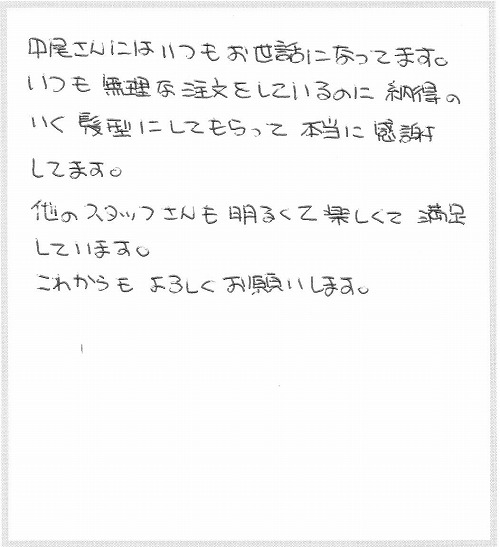 中尾さんにはいつもお世話になってます。
いつも無理な注文をしているのに納得の
いく髪型にしてもらって本当に感謝
してます。
他のスタッフさんも明るくて楽しくて満足
しています。
これからもよろしくお願いします。